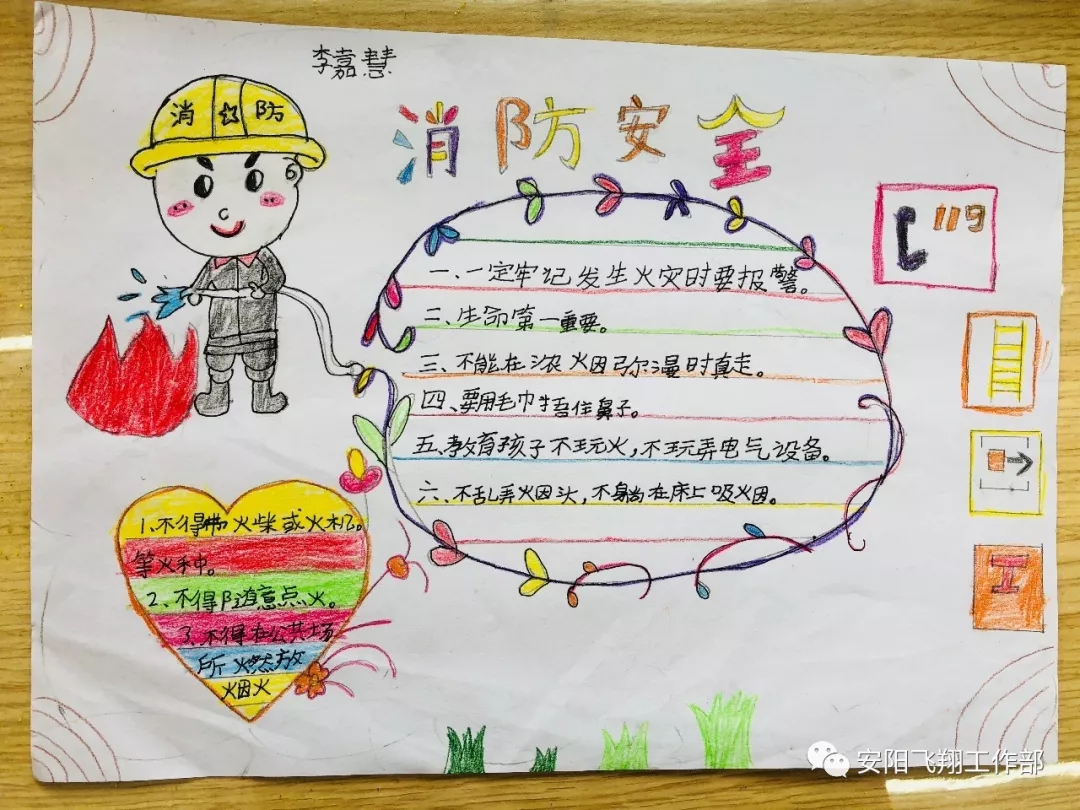 李嘉慧
消防
消防安全
119
一、一定牢记发生火灾时要报警。
二、生命第一重要。
三、不能在浓烟弥漫时真走。
四、要用毛巾捂住鼻子。
五、教育孩子不玩火,不玩弄电气设备。
六、不乱弄烟头,不躺在床上吸烟。
1.不得带火柴或火机。
等火种。
2、不得随意点火。
3、不得在公共场
所燃放
烟火
安阳飞翔工作部